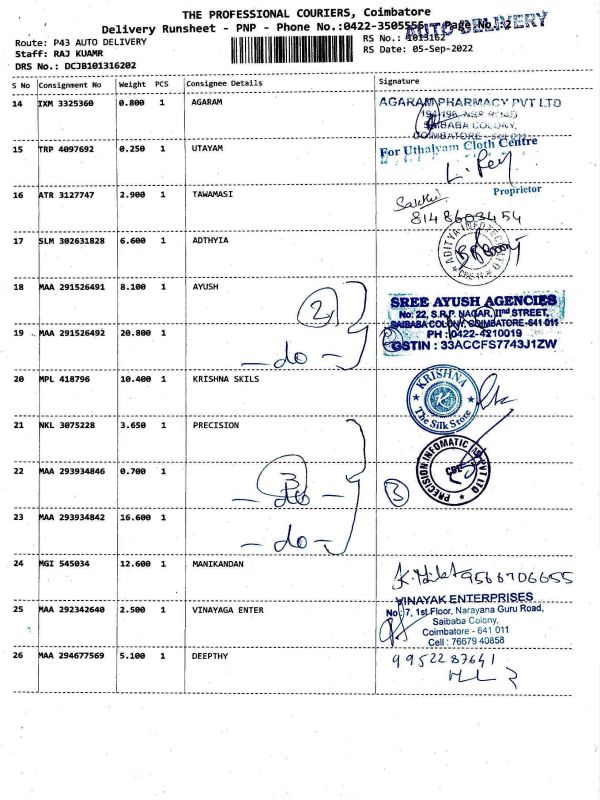 THE PROFESSIONAL COURIERS, Coimbatore
Delivery Runsheet - PNP - Phone No.:0422-3505555 Page No.:2
AUTO DELIVERY
Route: P43 AUTO DELIVERY
RS No.: 1013162
Staff: RAJ KUAMR
RS Date: 05-Sep-2022
DRS No.: DCJB101316202
S No Consignment No Weight PCS Consignee Details Signature
14 IXM 3325360 0.800 1 AGARAM
AGARAM PHARMACY PVT LTD
194/196, NSR ROAD
SAIBABA COLONY,
COIMBATORE
15 TRP 4097692 0.250 1 UTAYAM
For Uthaiyam Cloth Centre
Proprietor
16 ATR 3127747 2.900 1 TAWAMASI
Sakthi
8148603454
17 SLM 302631828 6.600 1 ADTHYIA
18 MAA 291526491 8.100 1 AYUSH
2
SREE AYUSH AGENCIES
No: 22, S.R.P. NAGAR, IInd STREET,
SAIBABA COLONY, COIMBATORE-641 011
PH : 0422-4210019
GSTIN : 33ACCFS7743J1ZW
19 MAA 291526492 20.800 1
- do -
20 MPL 418796 10.400 1 KRISHNA SKILS
KRISHNA
The Silk Store
21 NKL 3075228 3.650 1 PRECISION
PRECISION INFOMATIC (M) PVT LTD
CBE
22 MAA 293934846 0.700 1
3
- do -
3
23 MAA 293934842 16.600 1
- do -
24 MGI 545034 12.600 1 MANIKANDAN
9566706655
25 MAA 292342640 2.500 1 VINAYAGA ENTER
VINAYAK ENTERPRISES
No: 7, 1st Floor, Narayana Guru Road,
Saibaba Colony,
Coimbatore - 641 011
Cell : 76679 40858
26 MAA 294677569 5.100 1 DEEPTHY
9952287641